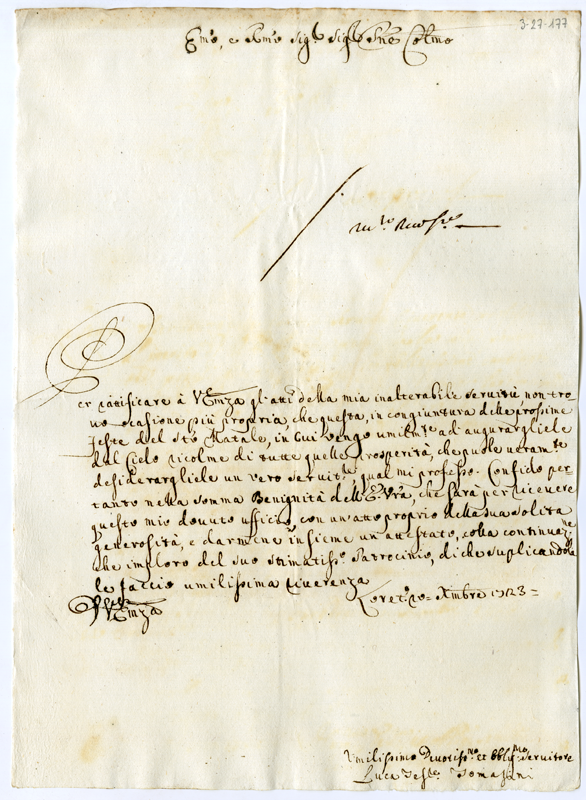 3-27-177
Em̃o, e Rm̃o Sig.r Sig.r Pñe Col̃mo
Per ratificare à V. Em̃za gl'atti della mia inalterabile servitù, non tro-
vo occasione più propria, che questa, in congiuntura delle prossime
feste del S.to Natale, in cui vengo umilm.te ad augurargliele
dal Cielo ricolme di tutte quelle prosperità, che puole veram.te
desiderargliele un vero servit.re qual mi professo. Confido per
tanto nella somma Benignità dell'E. Vr̃a, che sarà per ricevere
questo mio dovuto ufficio, con un'atto proprio della sua solita
generosità, e darmene insieme un'attestato, colla continuaz.ne
che imploro del suo stimatiss.o Patrocinio, di che suplicandola
le faccio umilissima riverenza
V. Em̃za
Loreto 10 = Xmbre 1723 =
Umilissimo Devotiss.mo et Obblig.mo Servitore
Luca Tomasini